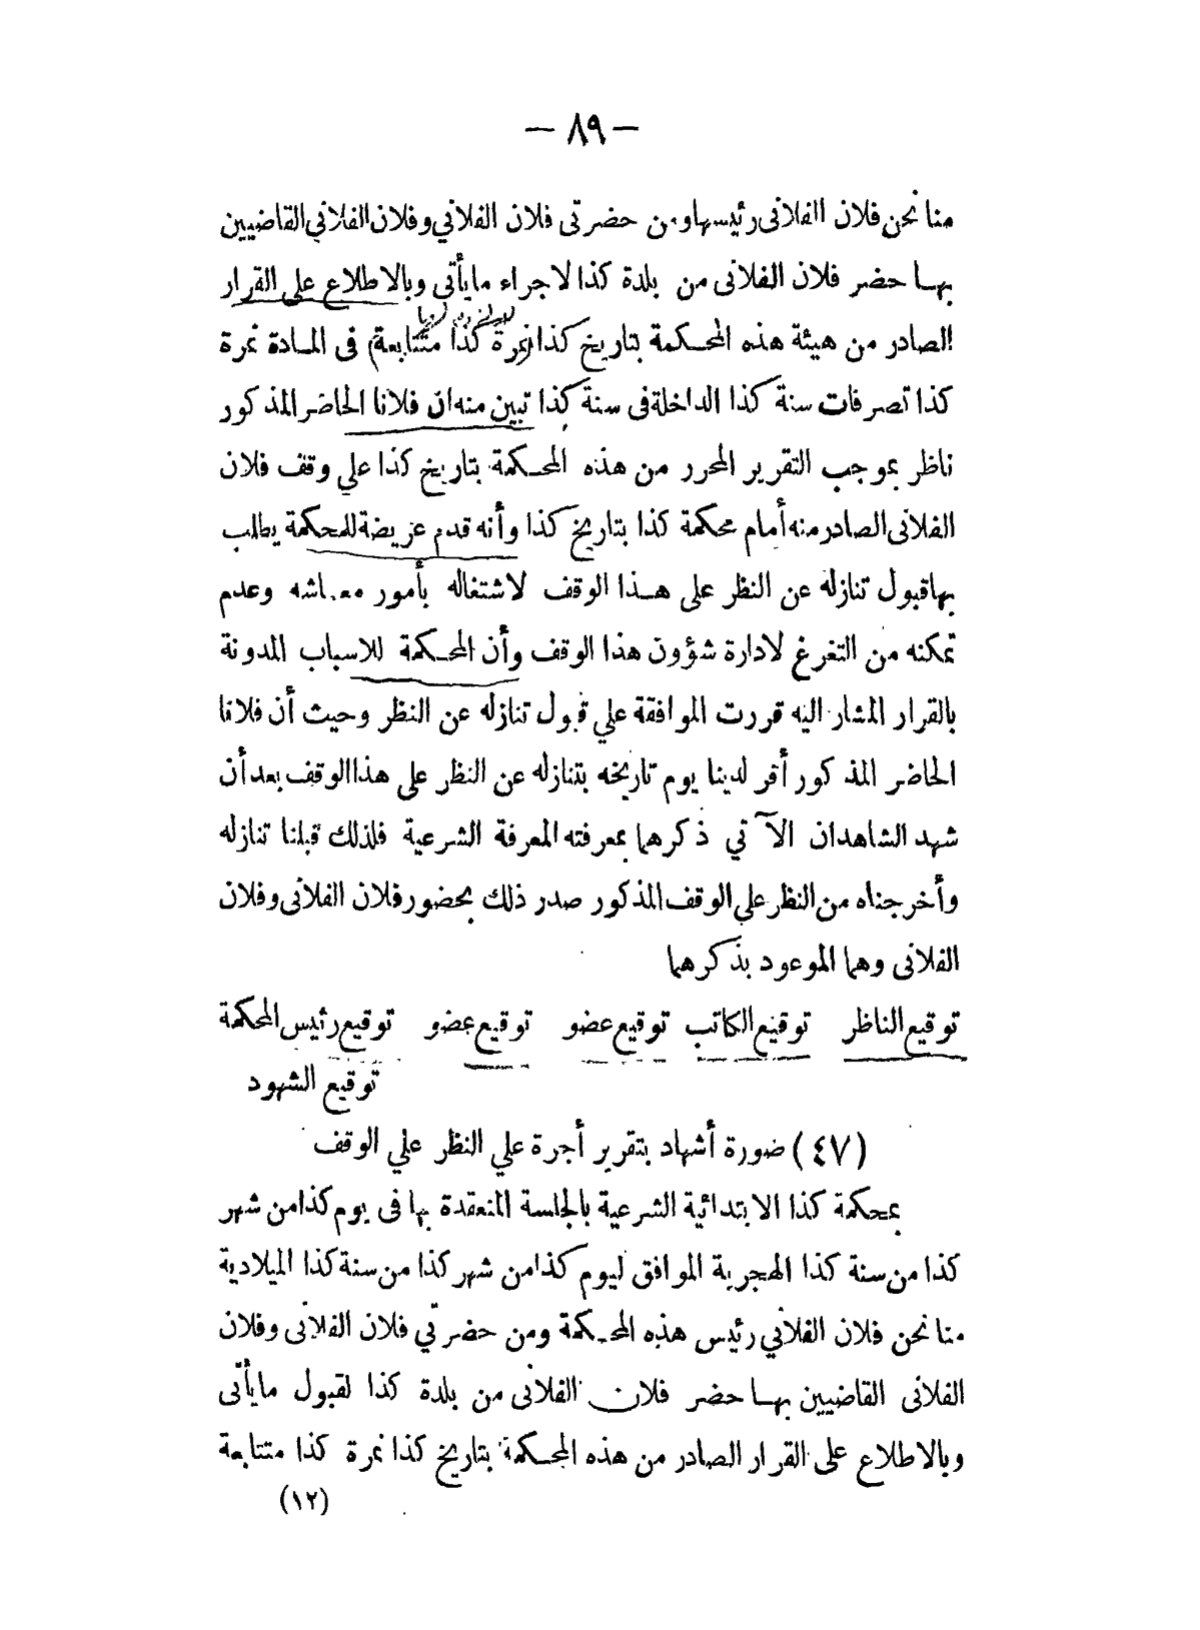 — ٨٩ —
منا نحن فلان الفلانى رئيسها ومن حضرتى فلان الفلاني وفلان الفلاني القاضيين
بهـا حضر فلان الفلانى من بلدة كذا لاجراء مايأتي وبالاطلاع على القرار
الصادر من هيئة هذه المحكمة بتاريخ كذا نمرة كذا متتابعة في المـادة نمرة
كذا تصرفات سنة كذا الداخلة فى سنة كذا تبين منه ان فلانا الحاضر المذكور
ناظر بموجب التقرير المحرر من هذه المحكمة بتاريخ كذا علي وقف فلان
الفلانى الصادر منه أمام محكمة كذا بتاريخ كذا وأنه قدم عريضة للمحكمة يطلب
بها قبول تنازله عن النظر على هـذا الوقف لاشتغاله بأمور معاشه وعدم
تمكنه من التفرغ لادارة شؤون هذا الوقف وأن المحكمة للاسباب المدونة
بالقرار المشار اليه قررت الموافقة علي قبول تنازله عن النظر وحيث أن فلانا
الحاضر المذكور أقر لدينا يوم تاريخه بتنازله عن النظر على هذا الوقف بعد أن
شهد الشاهدان الآتي ذكرهما بمعرفته المعرفة الشرعية فلذلك قبلنا تنازله
وأخرجناه من النظر علي الوقف المذكور صدر ذلك بحضور فلان الفلانى وفلان
الفلانى وهما الموعود بذكرهما
توقيع الناظر توقيع الكاتب توقيع عضو توقيع عضو توقيع رئيس المحكمة
توقيع الشهود
(٤٧) صورة أشهاد بتقرير أجرة علي النظر علي الوقف
بمحكمة كذا الابتدائية الشرعية بالجلسة المنعقدة بها فى يوم كذا من شهر
كذا من سنة كذا الهجرية الموافق ليوم كذا من شهر كذا من سنة كذا الميلادية
منا نحن فلان الفلاني رئيس هذه المحكمة ومن حضرتي فلان الفلانى وفلان
الفلانى القاضيين بهـا حضر فلان الفلانى من بلدة كذا لقبول مايأتى
وبالاطلاع على القرار الصادر من هذه المحكمة بتاريخ كذا نمرة كذا متتابعة
(١٢)